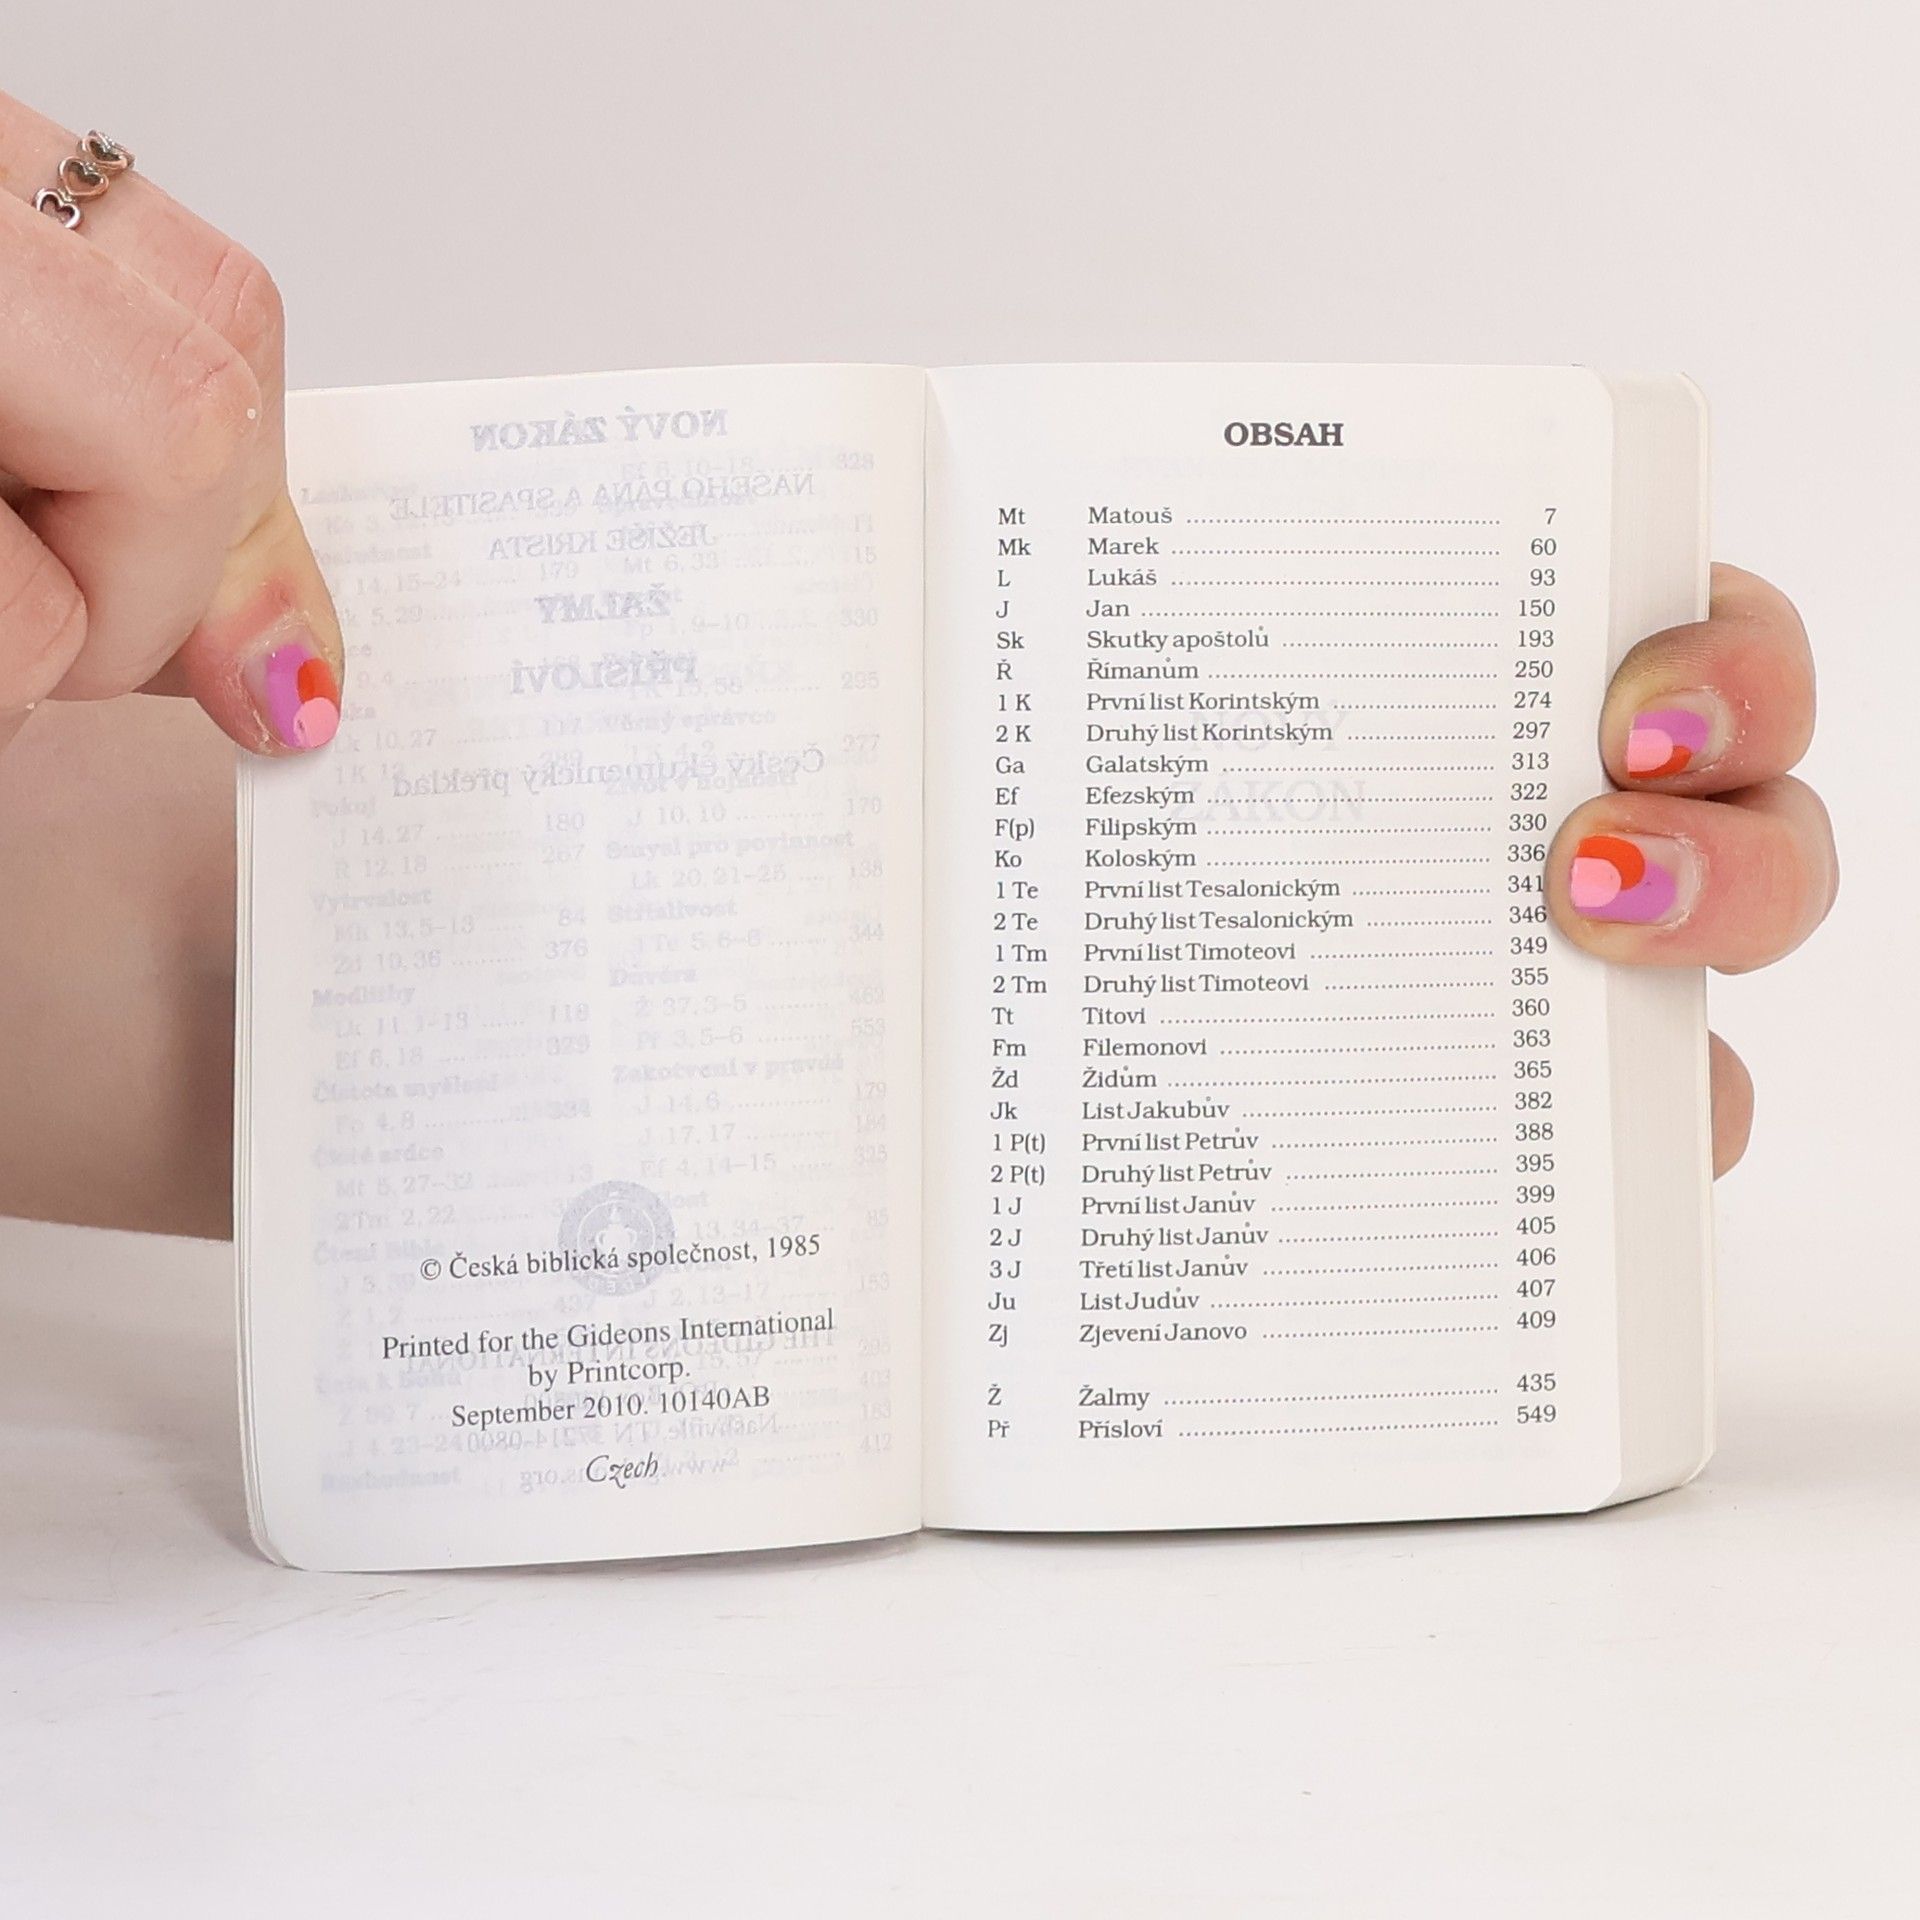 © Česká biblická společnost, 1985
Printed for the Gideons International
by Printcorp.
September 2010. 10140AB
Czech
OBSAH
Mt Matouš ........ 7
Mk Marek ........ 60
L Lukáš ........ 93
J Jan ........ 150
Sk Skutky apoštolů ........ 193
Ř Římanům ........ 250
1 K První list Korintským ........ 274
2 K Druhý list Korintským ........ 297
Ga Galatským ........ 313
Ef Efezským ........ 322
F(p) Filipským ........ 330
Ko Koloským ........ 336
1 Te První list Tesalonickým ........ 341
2 Te Druhý list Tesalonickým ........ 346
1 Tm První list Timoteovi ........ 349
2 Tm Druhý list Timoteovi ........ 355
Tt Titovi ........ 360
Fm Filemonovi ........ 363
Žd Židům ........ 365
Jk List Jakubův ........ 382
1 P(t) První list Petrův ........ 388
2 P(t) Druhý list Petrův ........ 395
1 J První list Janův ........ 399
2 J Druhý list Janův ........ 405
3 J Třetí list Janův ........ 406
Ju List Judův ........ 407
Zj Zjevení Janovo ........ 409
Ž Žalmy ........ 435
Př Přísloví ........ 549